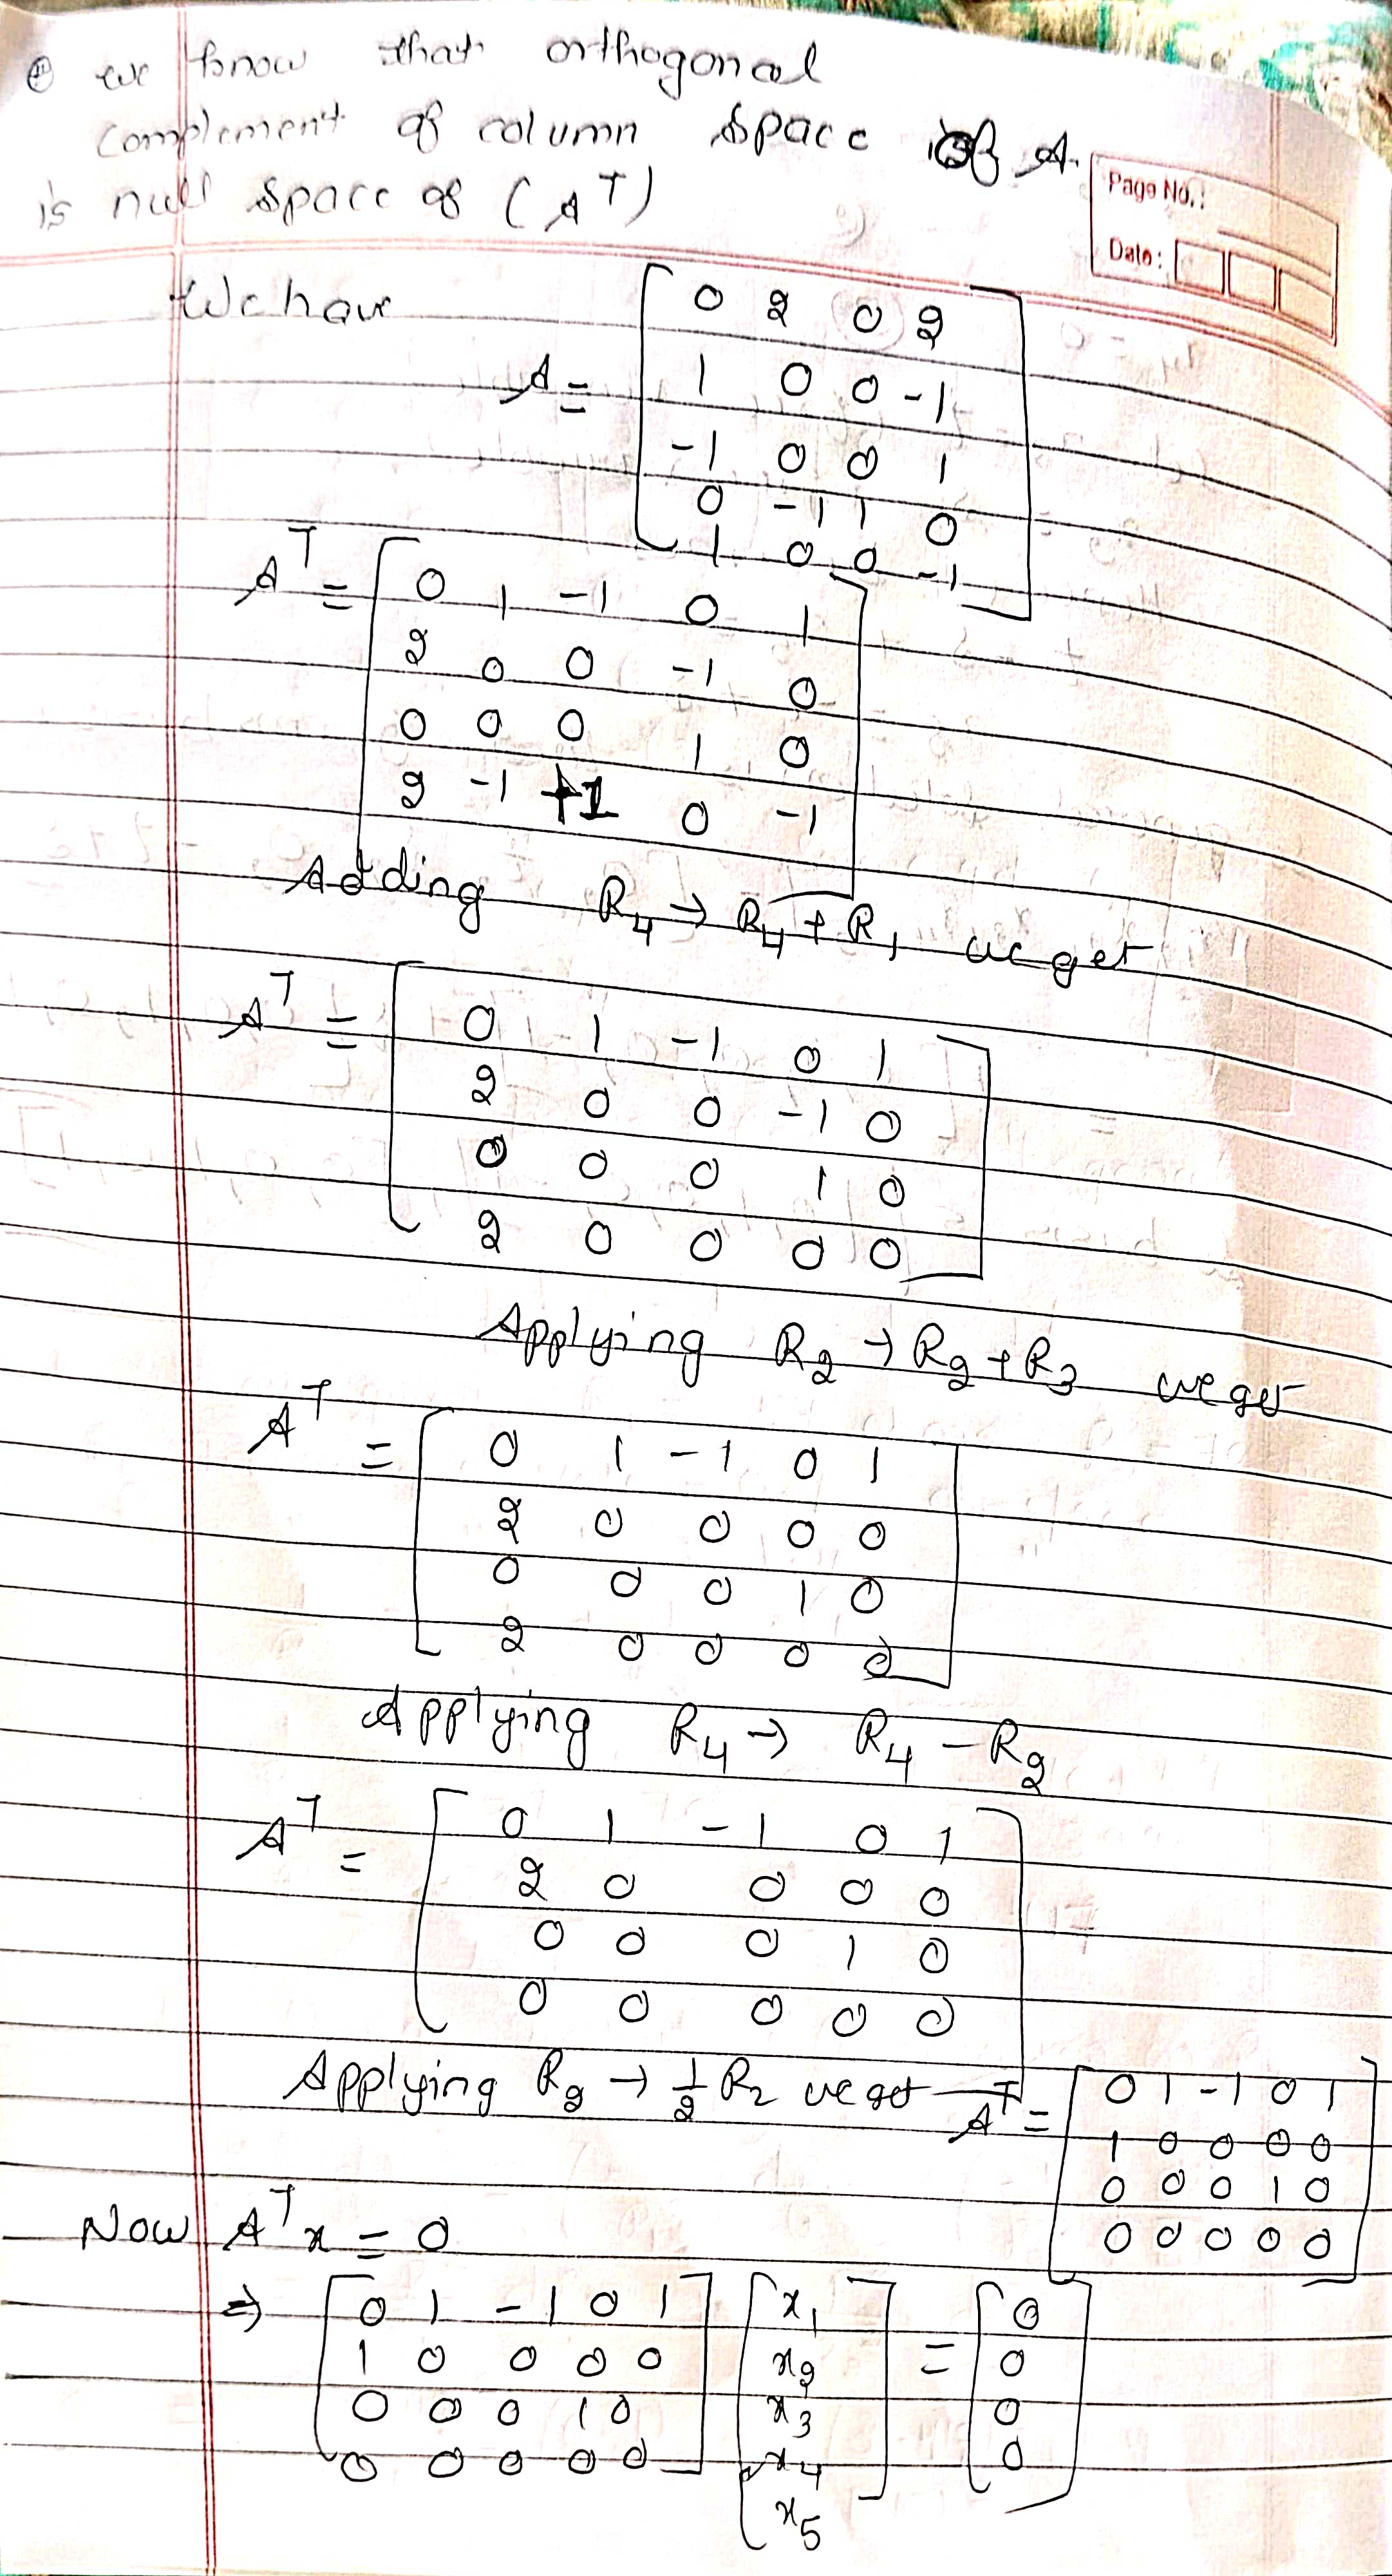 we know that orthogonal
complement of column space of A.
is null space of (A^T)
Page No.:
Date:
We have
A = [ 0 2 0 2
1 0 0 -1
-1 0 0 1
0 -1 1 0
1 0 0 -1 ]
A^T = [ 0 1 -1 0 1
2 0 0 -1 0
0 0 0 1 0
2 -1 +1 0 -1 ]
Adding R4 → R4 + R1 we get
A^T = [ 0 1 -1 0 1
2 0 0 -1 0
0 0 0 1 0
2 0 0 0 0 ]
Applying R2 → R2 + R3 we get
A^T = [ 0 1 -1 0 1
2 0 0 0 0
0 0 0 1 0
2 0 0 0 0 ]
Applying R4 → R4 - R2
A^T = [ 0 1 -1 0 1
2 0 0 0 0
0 0 0 1 0
0 0 0 0 0 ]
Applying R2 → 1/2 R2 we get A^T = [ 0 1 -1 0 1
1 0 0 0 0
0 0 0 1 0
0 0 0 0 0 ]
Now A^T x = 0
⇒ [ 0 1 -1 0 1 ] [ x1 ] = [ 0 ]
1 0 0 0 0 x2 0
0 0 0 1 0 x3 0
0 0 0 0 0 x4 0
x5